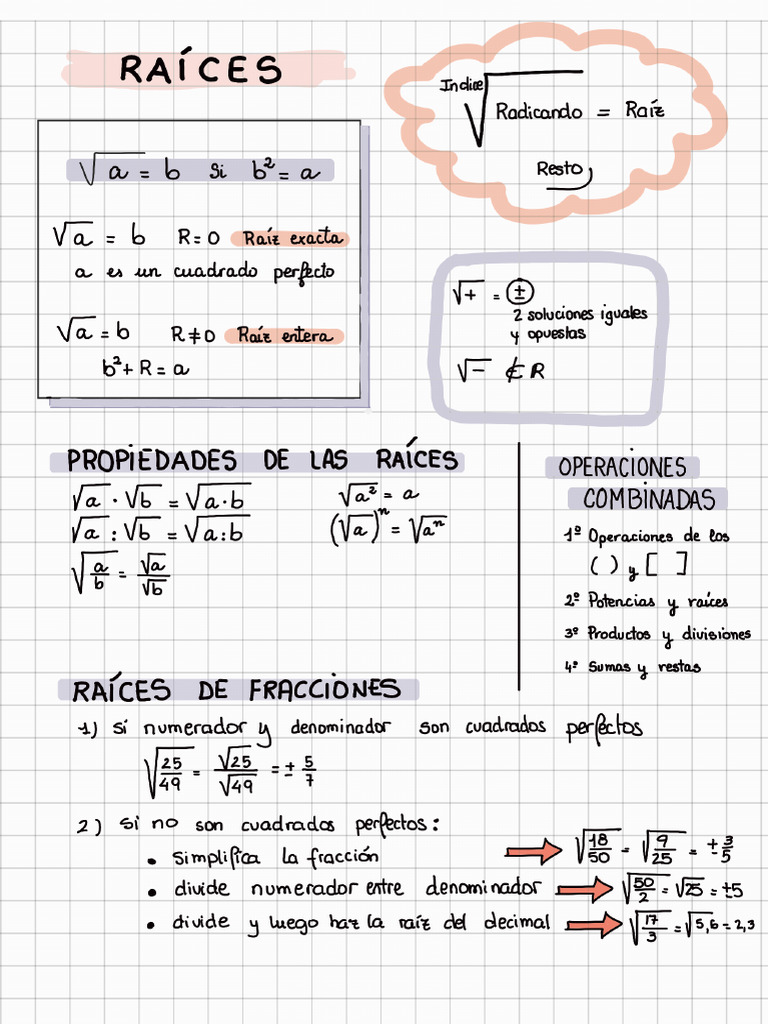 RAÍCES
Indice √Radicando = Raíz
Resto
√a = b si b² = a
√a = b R = 0 Raíz exacta
a es un cuadrado perfecto
√a = b R ≠ 0 Raíz entera
b² + R = a
√+ = ±
2 soluciones iguales
y opuestas
√− ∉ R
PROPIEDADES DE LAS RAÍCES
√a · √b = √(a·b)
√a : √b = √(a:b)
√(a/b) = √a/√b
√a² = a
(√a)ⁿ = √aⁿ
OPERACIONES
COMBINADAS
1º Operaciones de los
( ) y [ ]
2º Potencias y raíces
3º Productos y divisiones
4º Sumas y restas
RAÍCES DE FRACCIONES
1) si numerador y denominador son cuadrados perfectos
√(25/49) = √25/√49 = ± 5/7
2) si no son cuadrados perfectos:
• simplifica la fracción → √(18/50) = √(9/25) = ± 3/5
• divide numerador entre denominador → √(50/2) = √25 = ±5
• divide y luego haz la raíz del decimal → √(17/3) = √5,6 = 2,3